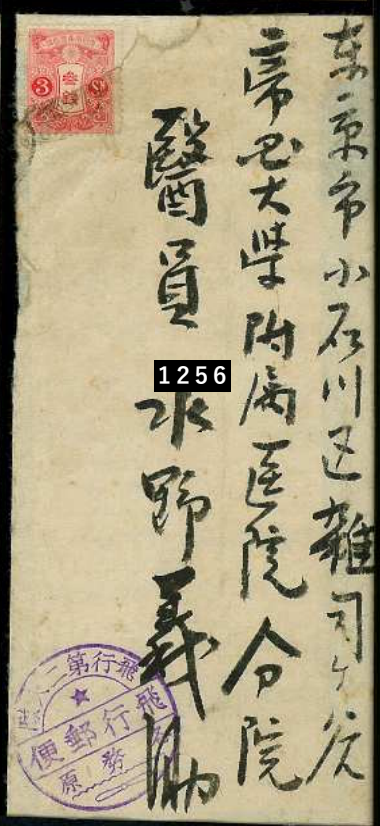 東京市小石川区雑司ケ谷
帝国大学附属医院分院
醫員 水野義助
1256
3
参銭
飛行第二
飛行郵便